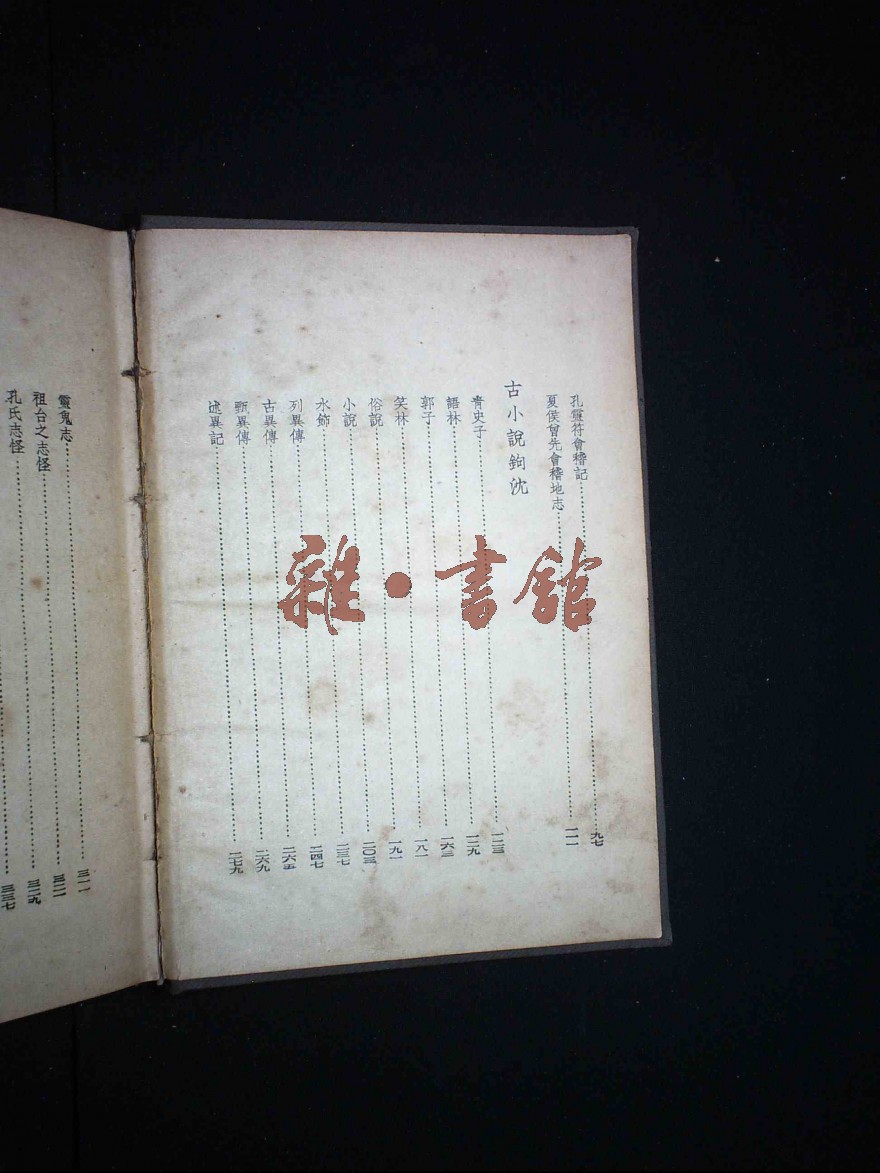 孔靈符會稽記……九七
夏侯曾先會稽地志……一一一
古小說鉤沈
青史子……一二三
語林……一二九
郭子……一六三
笑林……一八一
俗說……一九一
小說……二〇三
水飾……二三七
列異傳……二四七
古異傳……二六五
甄異傳……二六九
述異記……二七九
靈鬼志……三一一
祖台之志怪……三二一
孔氏志怪……三二九
三三七
雜·書館